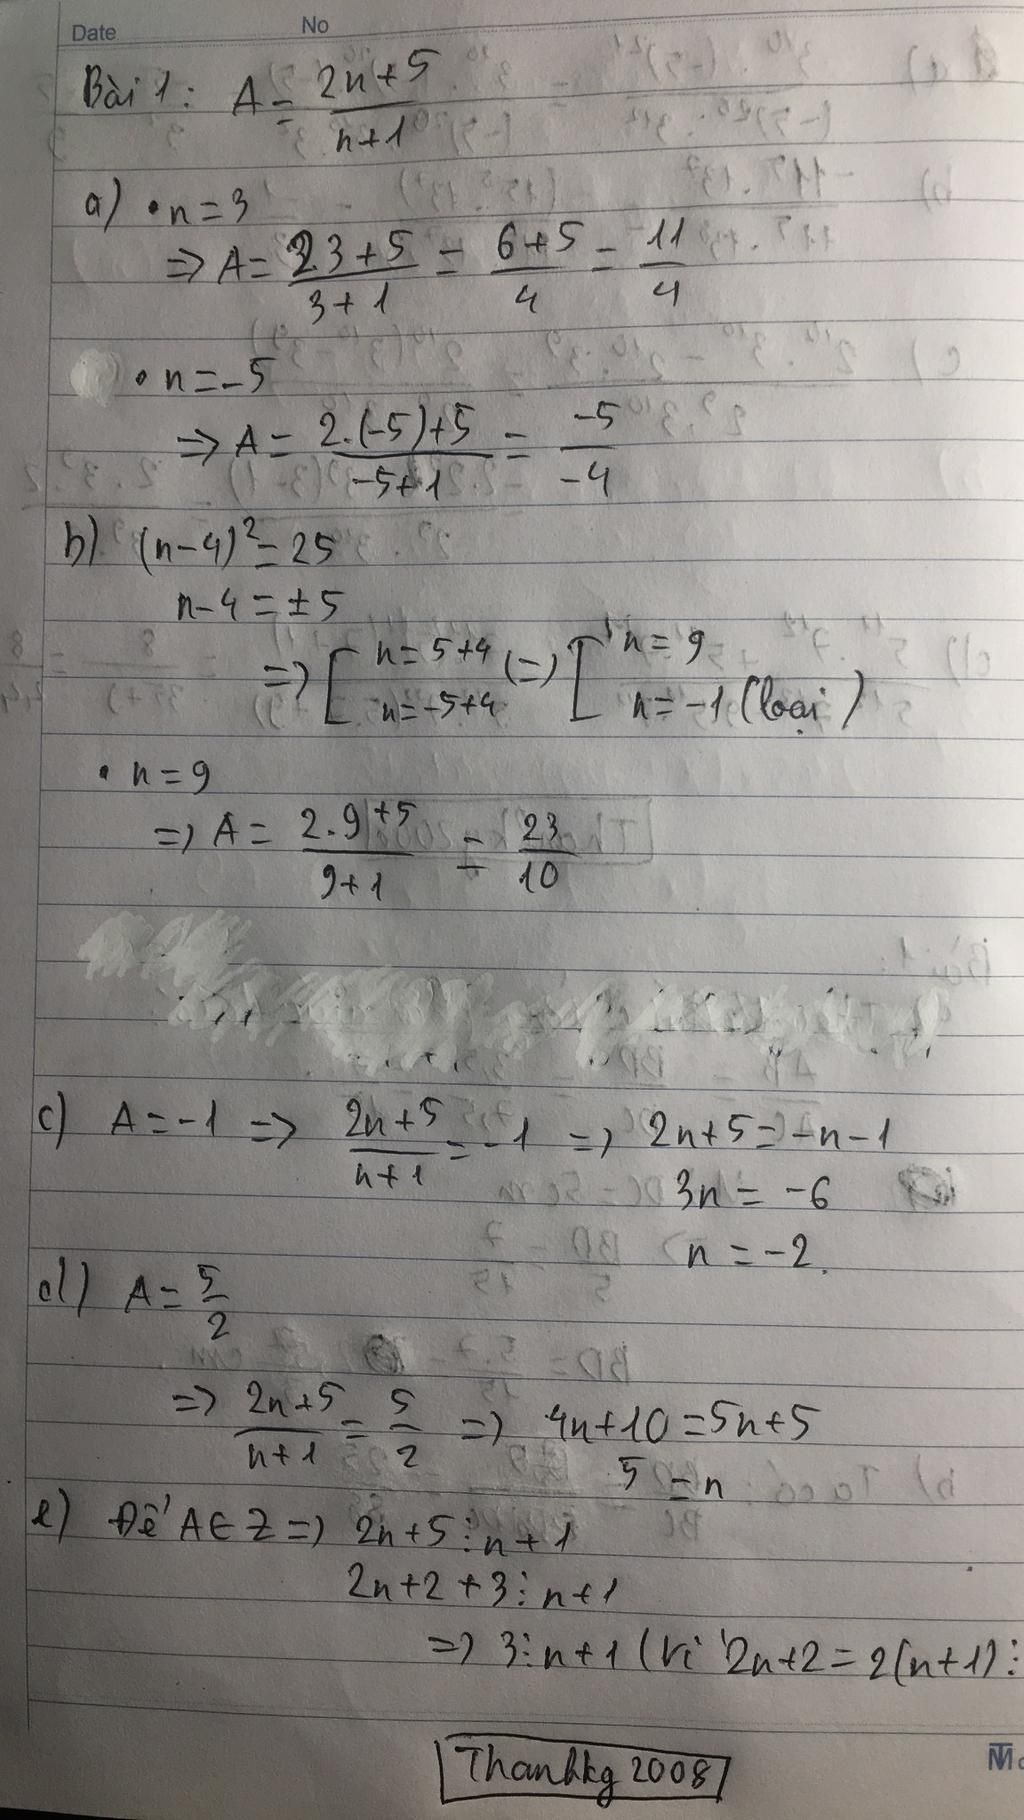 Date No
Bài 1: A = \frac{2n+5}{n+1}
a) • n = 3
=> A = \frac{2.3+5}{3+1} = \frac{6+5}{4} = \frac{11}{4}
• n = -5
=> A = \frac{2.(-5)+5}{-5+1} = \frac{-5}{-4}
b) (n-4)² = 25
n-4 = ±5
=> [ n = 5+4 (=) [ n = 9
n = -5+4 n = -1 (loại)
• n = 9
=> A = \frac{2.9+5}{9+1} = \frac{23}{10}
c) A = -1 => \frac{2n+5}{n+1} = -1 => 2n+5 = -n-1
3n = -6
n = -2.
d) A = \frac{5}{2}
=> \frac{2n+5}{n+1} = \frac{5}{2} => 4n+10 = 5n+5
5 = n
e) Để A ∈ Z => 2n+5 ⋮ n+1
2n+2+3 ⋮ n+1
=> 3 ⋮ n+1 (Vì 2n+2 = 2(n+1) ⋮
Thanhkg2008